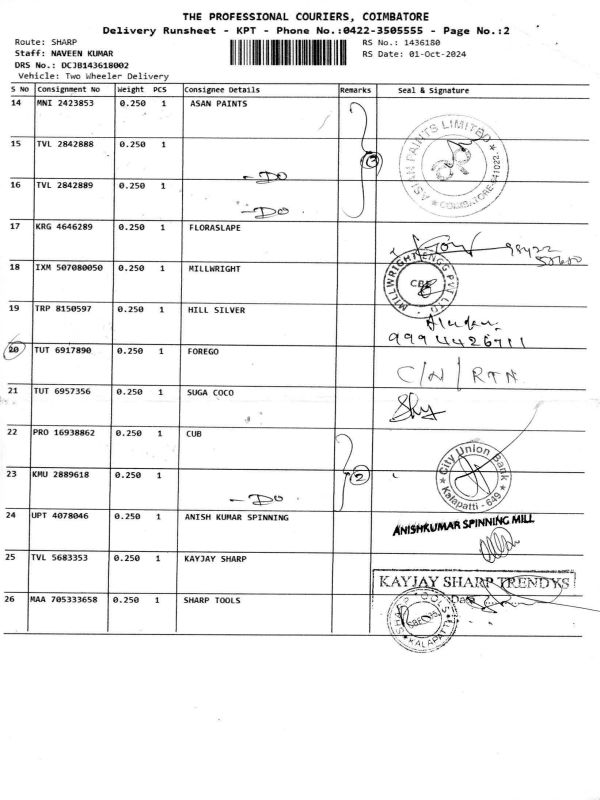 THE PROFESSIONAL COURIERS, COIMBATORE
Delivery Runsheet - KPT - Phone No.:0422-3505555 - Page No.:2
Route: SHARP RS No.: 1436180
Staff: NAVEEN KUMAR RS Date: 01-Oct-2024
DRS No.: DCJB143618002
Vehicle: Two Wheeler Delivery
S No Consignment No Weight PCS Consignee Details Remarks Seal & Signature
14 MNI 2423853 0.250 1 ASAN PAINTS
ASIAN PAINTS LIMITED
COIMBATORE-641022.
15 TVL 2842888 0.250 1
3
- DO
16 TVL 2842889 0.250 1
- DO
17 KRG 4646289 0.250 1 FLORASLAPE
18 IXM 507080050 0.250 1 MILLWRIGHT
MILLWRIGHT ENGG PVT LTD
CBE
19 TRP 8150597 0.250 1 HILL SILVER
9994426711
20 TUT 6917890 0.250 1 FOREGO
C/N/RTN
21 TUT 6957356 0.250 1 SUGA COCO
22 PRO 16938862 0.250 1 CUB
City Union Bank
Kalapatti - 649
23 KMU 2889618 0.250 1
2
- DO
24 UPT 4078046 0.250 1 ANISH KUMAR SPINNING
ANISHKUMAR SPINNING MILL
25 TVL 5683353 0.250 1 KAYJAY SHARP
KAYJAY SHARP TRENDYS
26 MAA 705333658 0.250 1 SHARP TOOLS
KALAPATTI